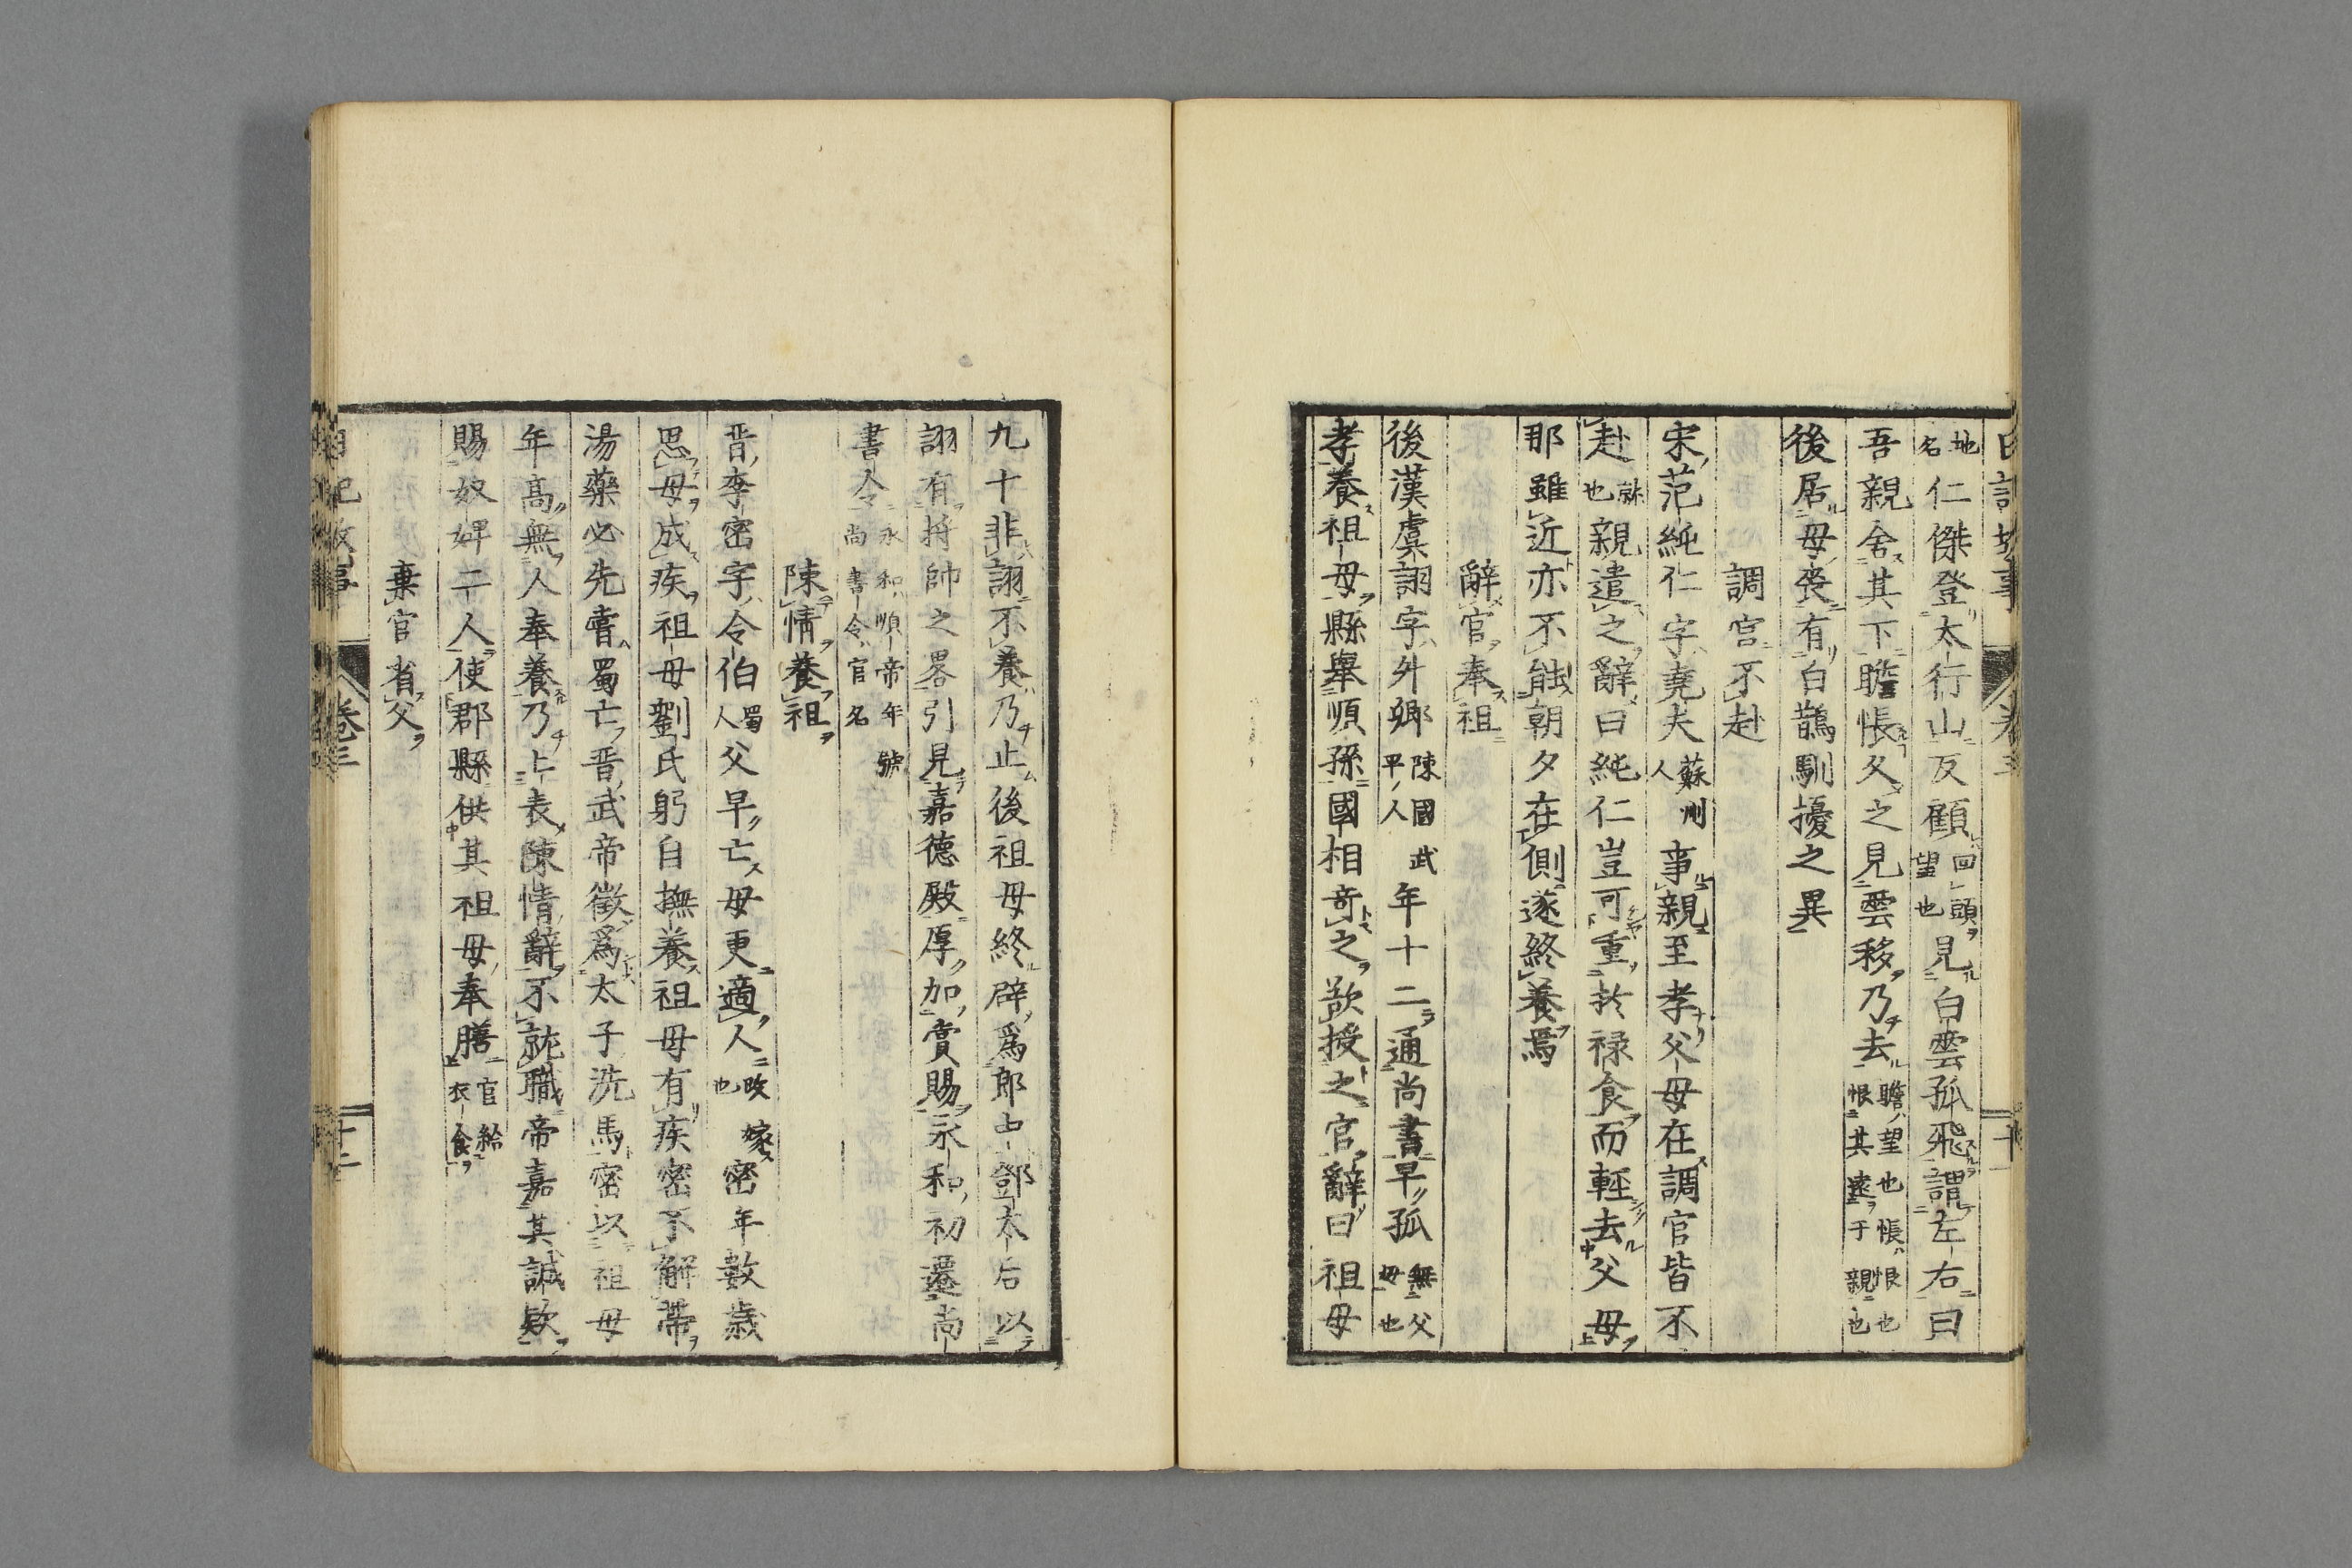 日記故事 卷三 十一
地名仁傑登太行山反顧回頭望也見白雲孤飛謂左右曰
吾親舍其下瞻悵久之見雲移乃去瞻望也悵恨也恨其遠于親也
後居母喪有白鵲馴擾之異
調官不赴
宋范純仁字堯夫蘇州人事親至孝父母在調官皆不
赴就也親遣之辭曰純仁豈可重於祿食而輕去父母
那雖近亦不能朝夕在側遂終養焉
辭官奉祖
後漢虞詡字升卿陳國武平人年十二通尚書早孤無父母也
孝養祖母縣舉順孫國相奇之欲授之官辭曰祖母
九十非詡不養乃止後祖母終辟爲郎中鄧太后以
詡有將帥之畧引見嘉德殿厚加賞賜永和初遷尚
書令永和順帝年號尚書令官名
陳情養祖
晋李密字令伯蜀人父早亡母更適人改嫁也密年數歲
思母成疾祖母劉氏躬自撫養祖母有疾密不解帶
湯藥必先嘗蜀亡晋武帝徵爲太子洗馬密以祖母
年高無人奉養乃上表陳情辭不就職帝嘉其誠欵
賜奴婢二人使郡縣供其祖母奉膳官給衣食
棄官省父
日記故事 卷三 十二